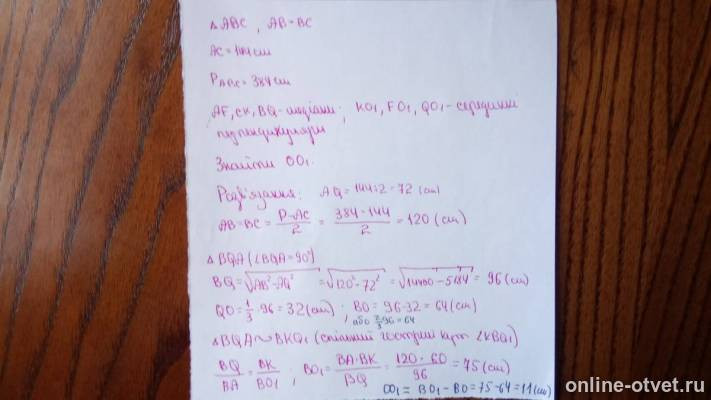 △ABC, AB=BC
AC=144 cm
P ABC = 384 cm
AF, CK, BQ - медіани; KO₁, FO₁, QO₁ - серединні
перпендикуляри
Знайти OO₁.
Розв'язання: AQ = 144:2 = 72 (cm)
AB=BC = (P-AC)/2 = (384-144)/2 = 120 (cm)
△BQA (∠BQA=90°)
BQ = √(AB²-AQ²) = √(120²-72²) = √(14400-5184) = 96 (cm)
QO = 1/3 · 96 = 32 (cm); BO = 96-32 = 64 (cm)
або 2/3·96=64
△BQA ~ BKO₁ (спільний гострий кут ∠KBO₁)
BQ/BA = BK/BO₁; BO₁ = BA·BK/BQ = 120·60/96 = 75 (cm)
OO₁ = BO₁ - BO = 75-64 = 11 (cm)
online-otvet.ru